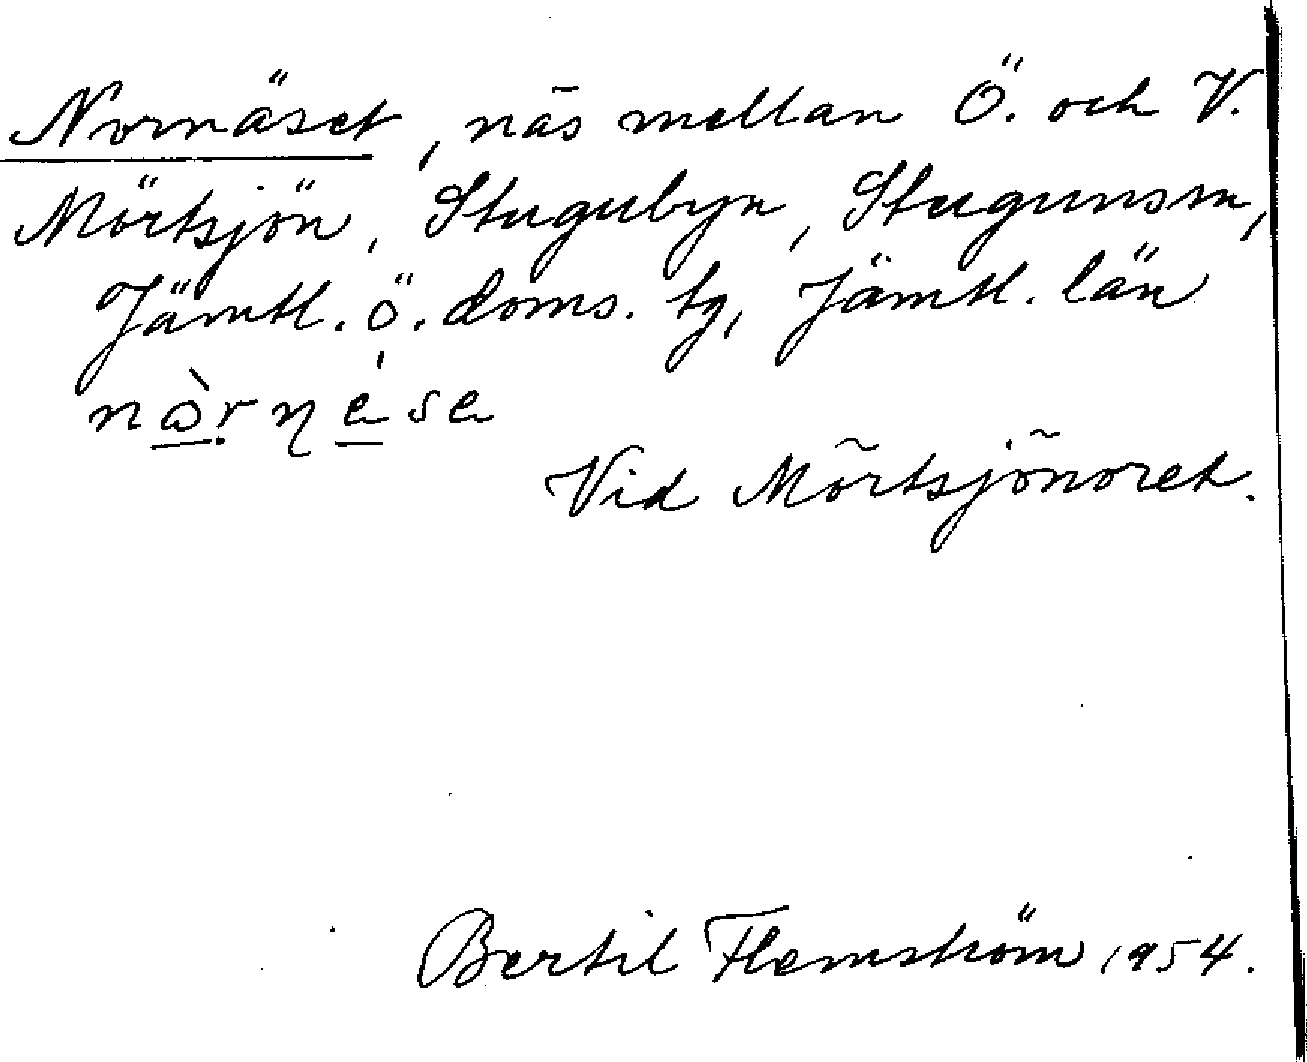 Nornäset, näs mellan Ö. och V.
Mörtsjön, Stugubyn, Stugunsm,
Jämtl. ö. doms. tg, Jämtl. län
Vid Mörtsjönoret.
Bertil Flemström 1954.